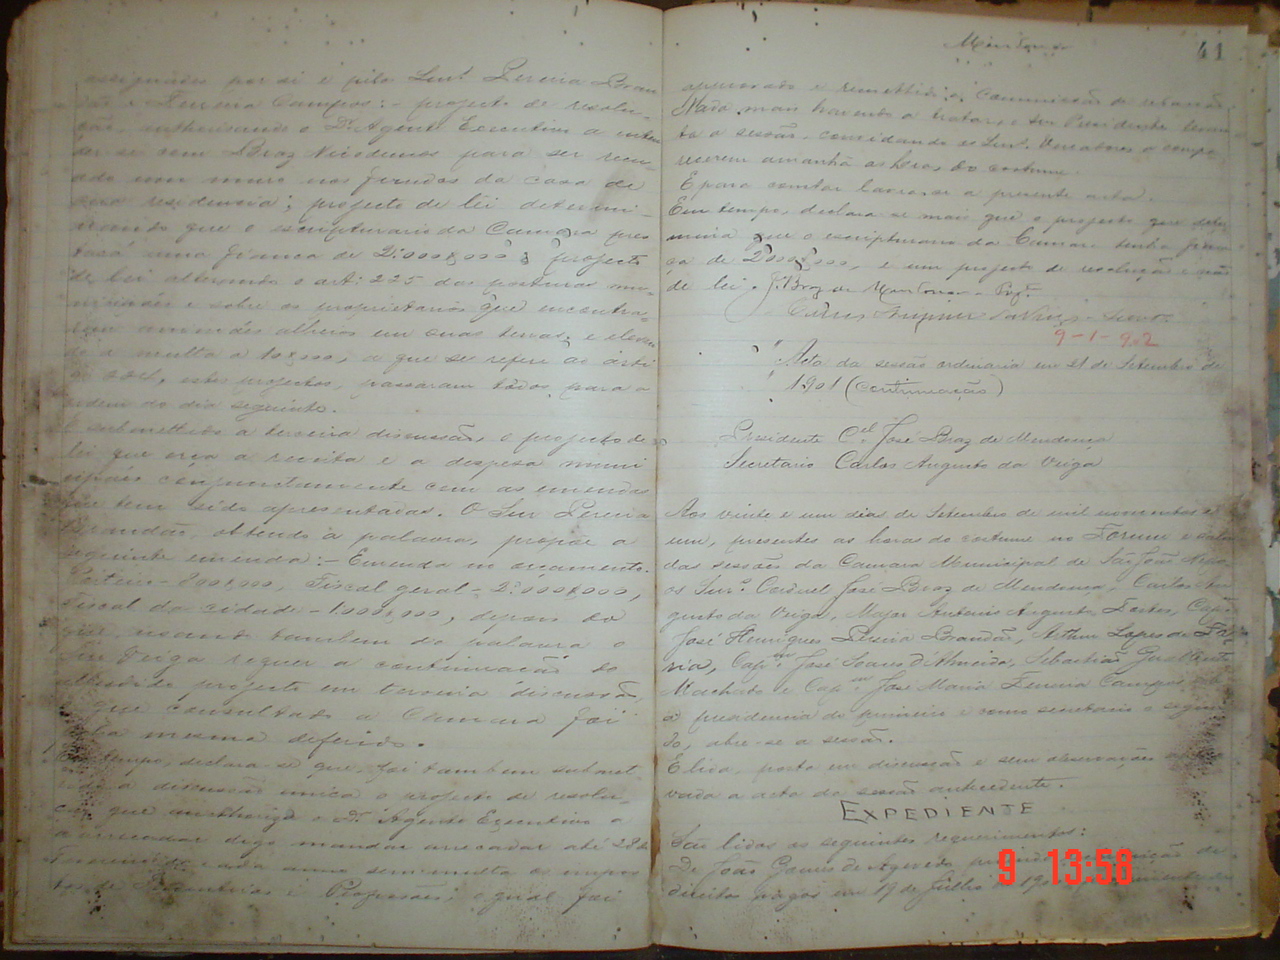 assignados por si e pelo Snr. Pereira Bran
dão e Ferreira Campos: - projecto de resolu-
ção, authorisando o Dr. Agente Executivo a enten
der-se com Braz Nicodemos para ser recu-
ado um muro nos fundos da casa de
sua residencia; projecto de lei determi-
nando que o escripturario da Camara pres
tará uma fiança de 2:000$000; projecto
de lei alterando o art: 225 das posturas mu-
nicipaes e sobre os proprietarios que encontra-
rem animaes alheios em suas terras, e elevan
do a multa a 10$000, a que se refere o arti
estes projectos, passaram todos para a
ordem do dia seguinte.
É submettido a terceira discussão, o projecto de
lei que orça a receita e a despesa muni
cipaes conjunctamente com as emendas
que tem sido apresentadas. O Snr Pereira
Brandão, obtendo a palavra, propõe a
seguinte emenda: - Emenda no orçamento.
Porteiro - 800$000, Fiscal geral - 2:000$000,
Fiscal da cidade - 1000$000, depois do
que, usando tambem da palavra o
Snr Veiga requer a continuação do
alludido projecto em terceira discussão,
que consultada a Camara foi
pela mesma deferido.
Em tempo, declara-se que, foi tambem submet-
tido a discussão unica o projecto de resolu-
ção que authorisa o Dr. Agente Executivo a
arrecadar digo mandar arrecadar até 28 de
Fevereiro de cada anno sem multa os impos
tos de Industrias e Profissões; o qual foi
41
approvado e remettido á Commissão de redacção.
Nada mais havendo a tratar, o Snr Presidente levan
ta a sessão, convidando os Snrs. Vereadores a compa
recerem amanhã as horas do costume.
E para constar lavra-se a presente acta.
Em tempo, declara-se mais que o projecto que deter
mina que o escripturario da Camara tenha fian
ça de 2:000$000, é um projecto de resolução e não
de lei. J. Braz de Mendonça - Prest.
9-1-902
Acta da sessão ordinaria em 21 de Setembro de
1901 (continuação)
Presidente Cel. José Braz de Mendonça
Secretario Carlos Augusto da Veiga
Aos vinte e um dias de Setembro de mil novecentos e
um, presentes as horas do costume no Forum e sala
das sessões da Camara Municipal de São João
os Snrs. Coronel José Braz de Mendonça, Carlos Au
gusto da Veiga, Major Antonio Augusto Fortes, Capm.
José Henriques Pereira Brandão, Arthur Lopes de Fa
ria, Capm. José Soares d'Almeida, Sebastião Gualberto
Machado e Capm. José Maria Ferreira Campos, sob
a presidencia do primeiro e como secretario o segun
do, abre-se a sessão.
É lida, posta em discussão e sem observações appro
vada a acta da sessão antecedente.
EXPEDIENTE
São lidos os seguintes requerimentos:
De João Gomes de Azevedo
direitos pagos em 19 de Julho
9 13:58